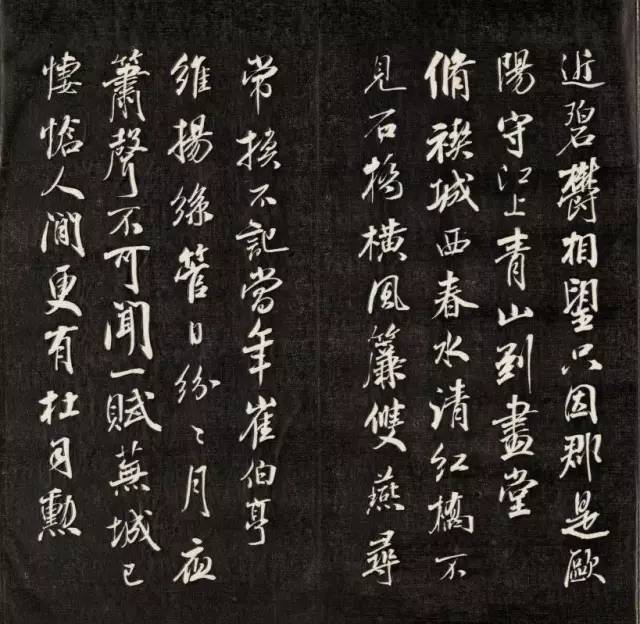 近碧欝相望只因郡是歐
陽守江上青山到畫堂
脩禊城西春水清紅橋不
見石橋橫風簾雙燕尋
常換不記當年崔伯亨
維揚絲管日紛〻月夜
簫聲不可聞一賦蕪城已
悽愴人間更有杜司勳